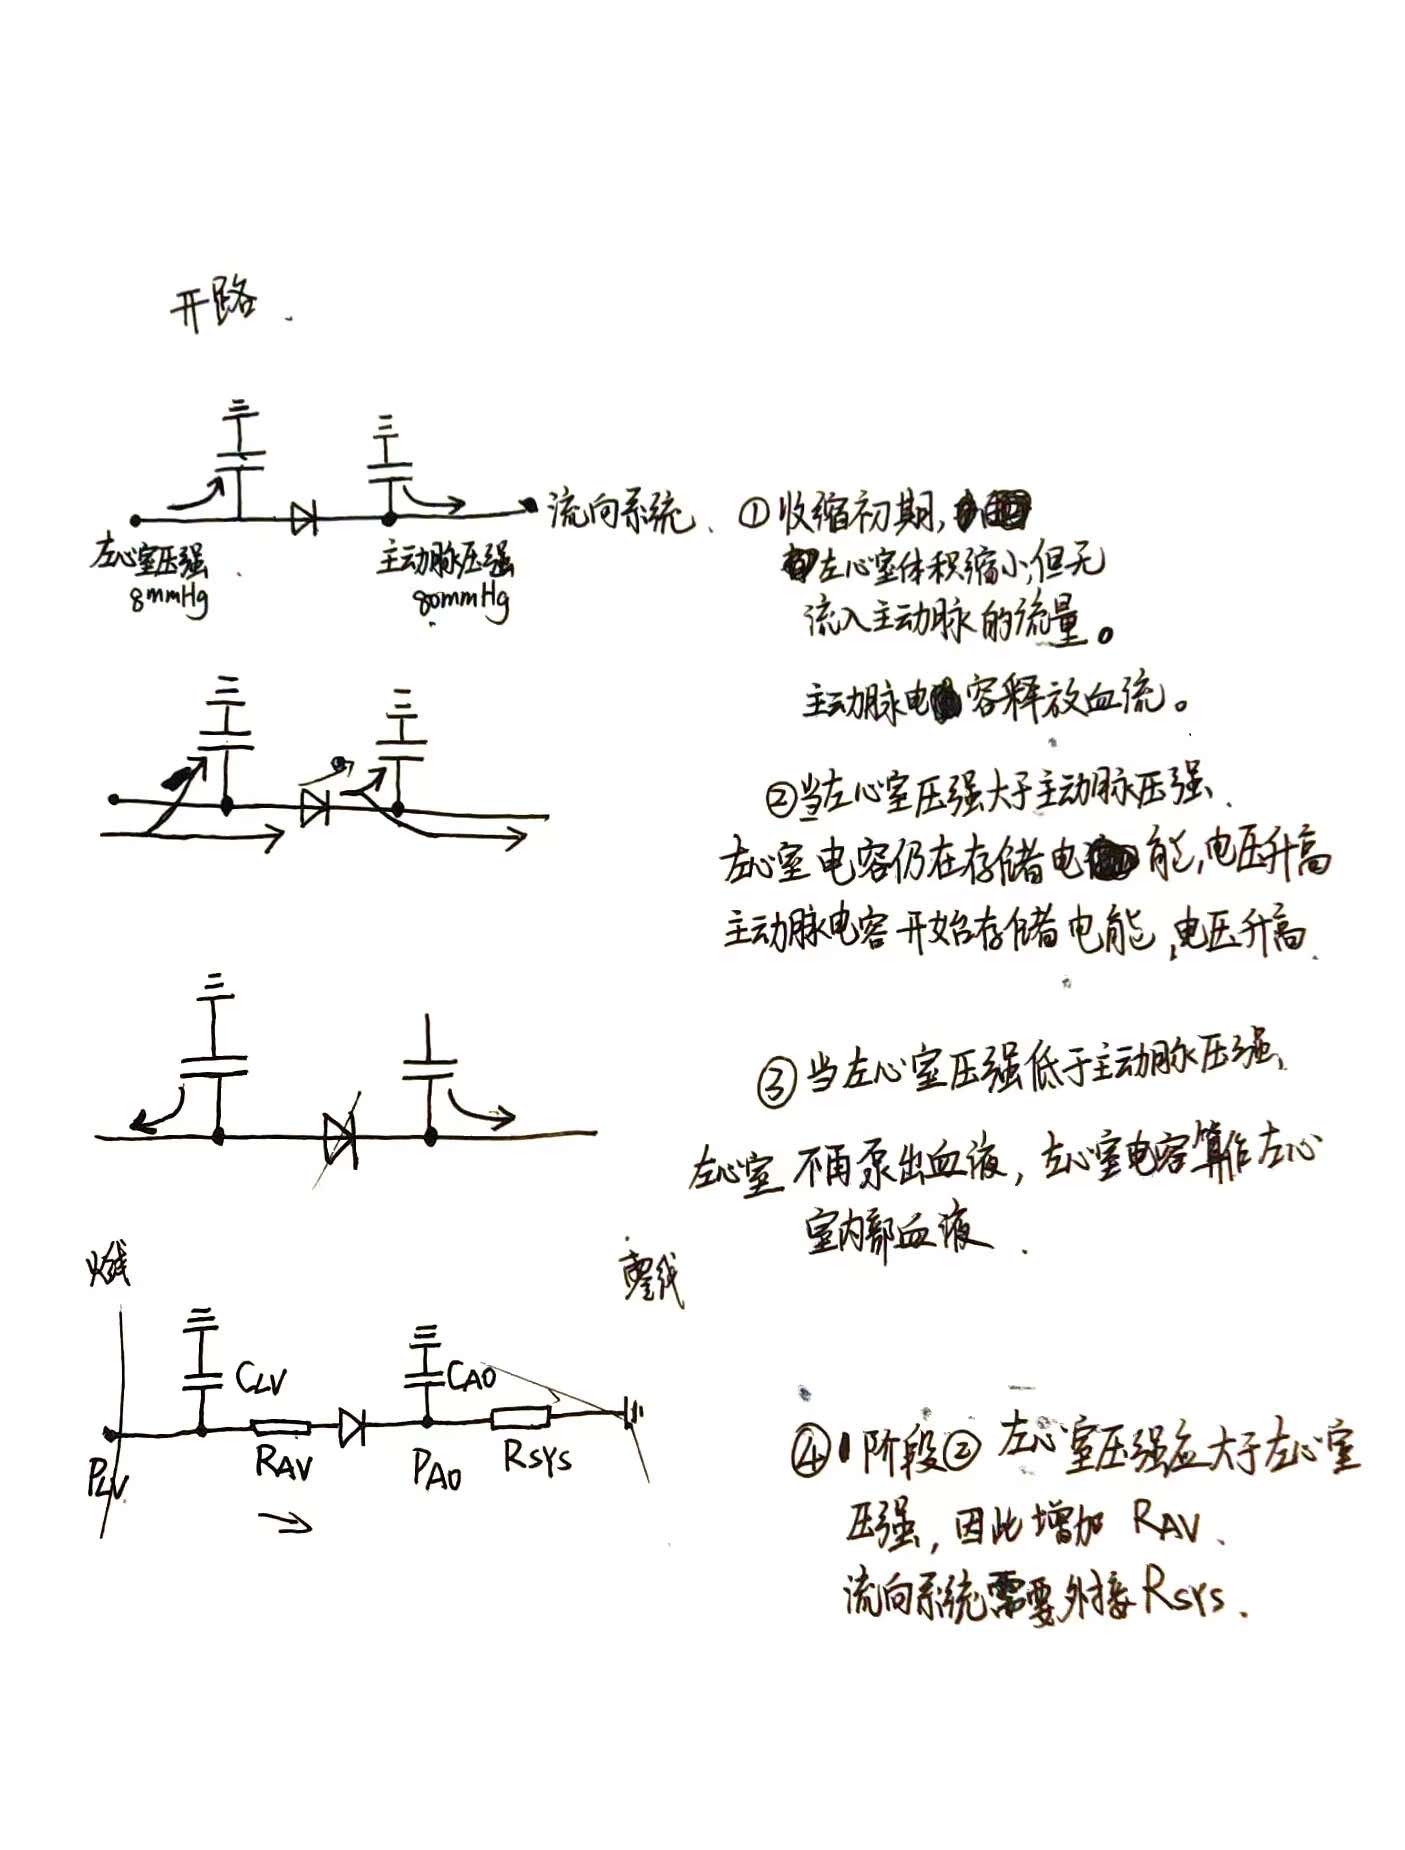 开路.
流向系统、
左心室压强
8mmHg
主动脉压强
80mmHg
①收缩初期,
左心室体积缩小,但无
流入主动脉的流量。
主动脉电容释放血流。
②当左心室压强大于主动脉压强、
左心室电容仍在存储电能,电压升高
主动脉电容开始存储电能,电压升高.
③当左心室压强低于主动脉压强、
左心室不再泵出血液,左心室电容算作左心
室内部血液.
火线
零线
CLV
CAO
PLV
RAV
PAO
RSYS
④阶段②左心室压强应大于左心室
压强,因此增加RAV、
流向系统需要外接RSYS.